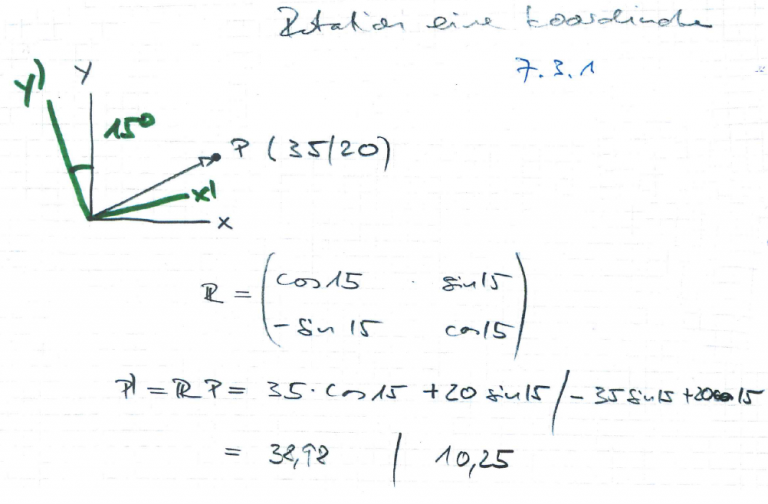 Rotation eine Koordinate
7.3.1
y' y
15°
P (35/20)
x'
x
R = (cos 15 sin 15
- sin 15 cos 15)
P' = R P = 35 · cos 15 + 20 sin 15 / - 35 sin 15 + 20 cos 15
= 38,98 | 10,25